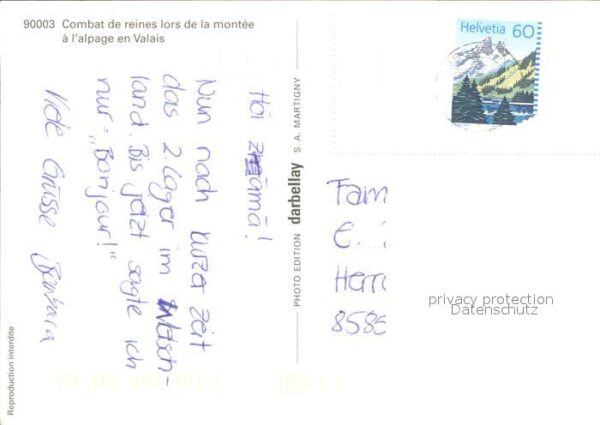 90003 Combat de reines lors de la montée
à l'alpage en Valais
Helvetia 60
Hoi zämä!
Nun nach kurzer Zeit
das 2. Lager im Welsch-
land. Bis jetzt sagte ich
nur: "Bonjour!"
Viele Grüsse Barbara
PHOTO EDITION darbellay S.A. MARTIGNY
Fam
Herr
privacy protection
Datenschutz
Reproduction interdite